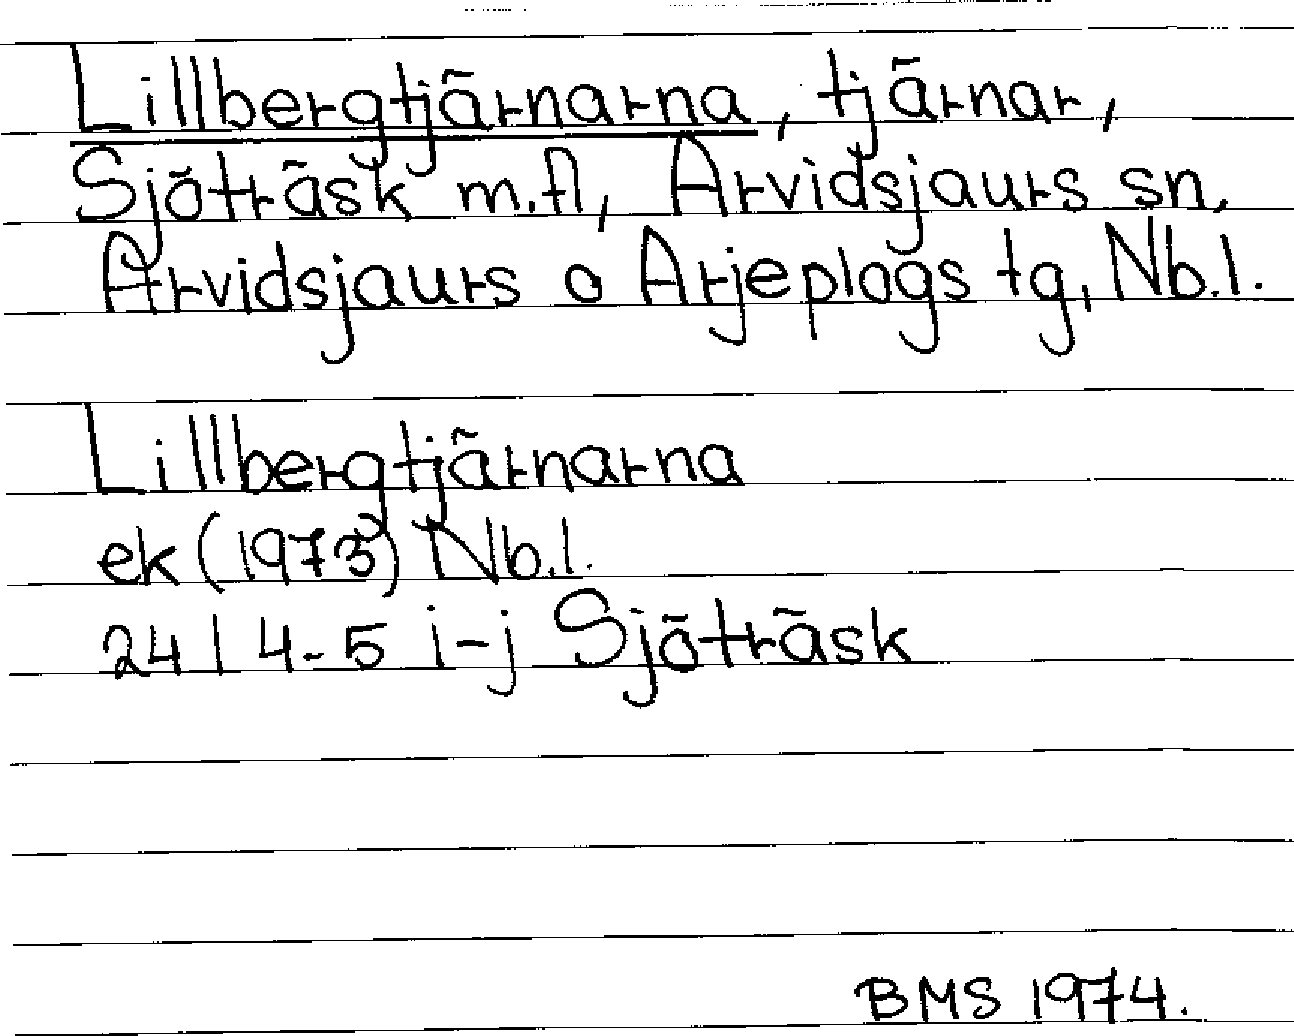 Lillbergtjärnarna, tjärnar,
Sjöträsk m.fl, Arvidsjaurs sn,
Arvidsjaurs o Arjeplogs tg, Nb.l.
Lillbergtjärnarna
ek (1973) Nb.l.
24 I 4-5 i-j Sjöträsk
BMS 1974.